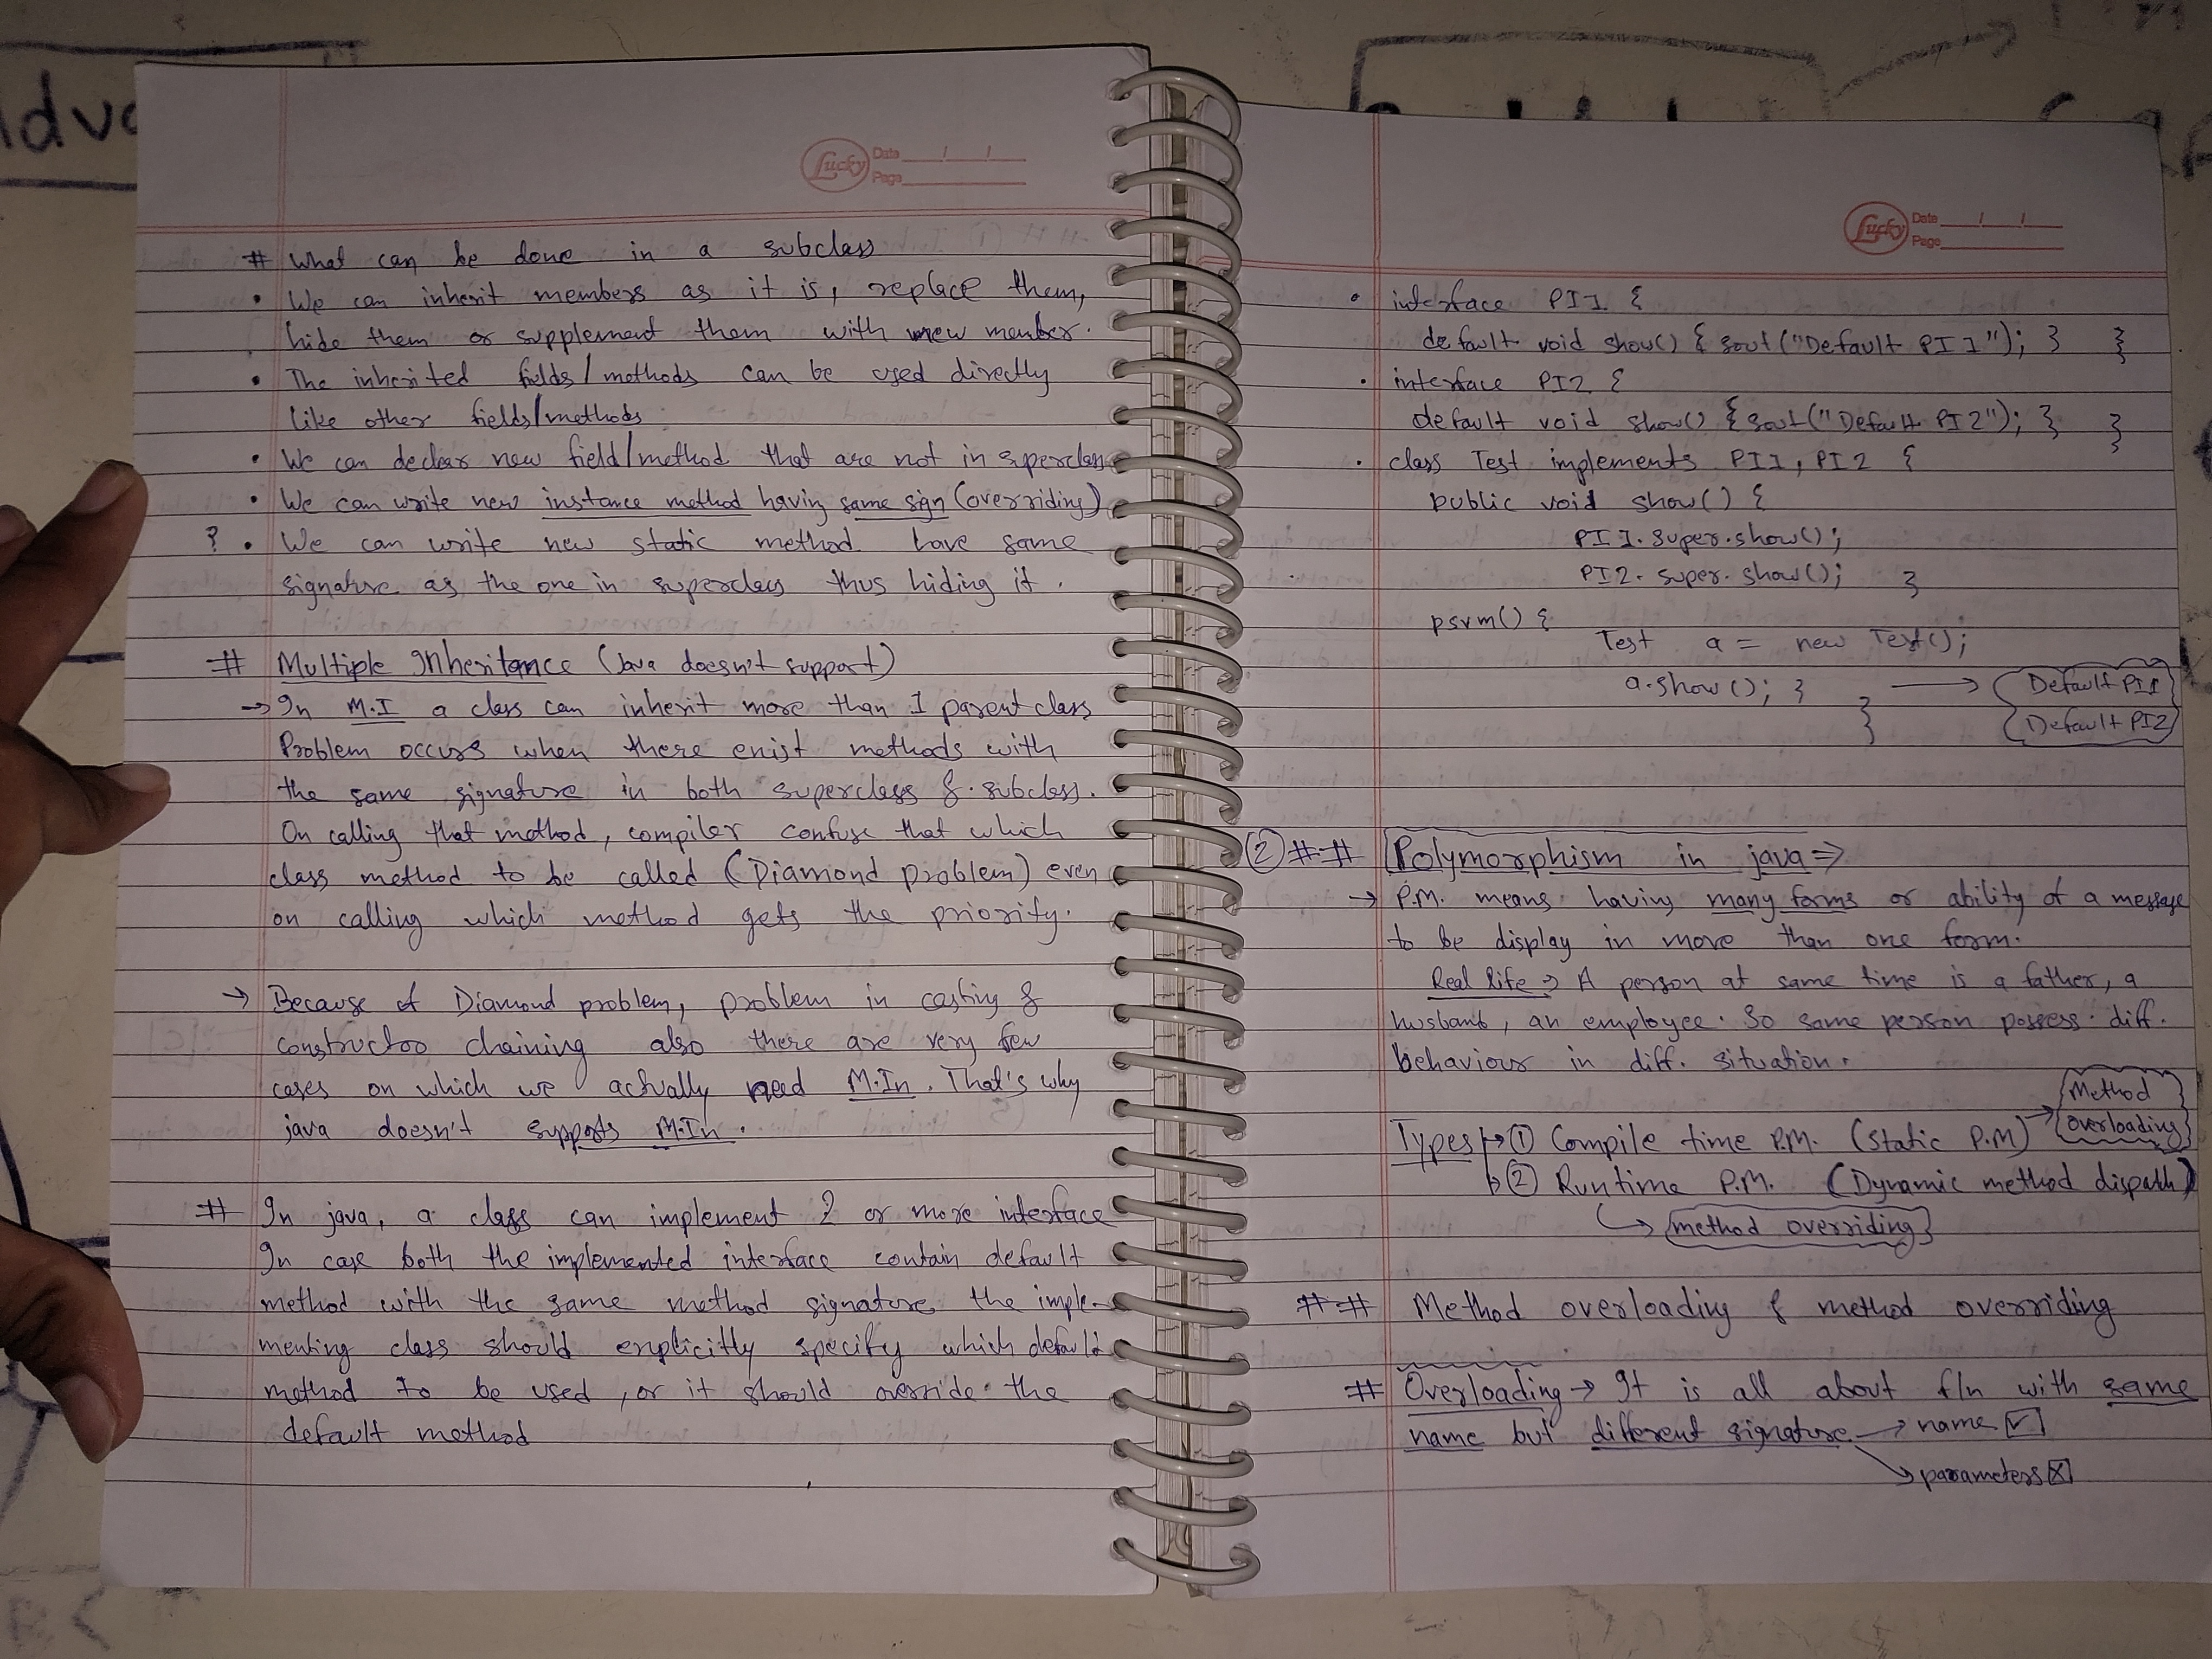 Lucky Date / /
Page
# What can be done in a subclass
• We can inherit members as it is, replace them,
hide them or supplement them with new member.
• The inherited fields/methods can be used directly
like other fields/methods
• We can declear new field/method that are not in superclass
• We can write new instance method having same sign (overriding)
? • We can write new static method have same
signature as the one in superclass thus hiding it.
# Multiple Inheritance (Java doesn't support)
→ In M.I a class can inherit more than 1 parent class
Problem occurs when there exist methods with
the same signature in both superclass & subclass.
On calling that method, compiler confuse that which
class method to be called (Diamond problem) even
on calling which method gets the priority.
→ Because of Diamond problem, problem in casting &
constructor chaining also there are very few
cases on which we actually need M.In. That's why
java doesn't supports M.In.
# In java, a class can implement 2 or more interface
In case both the implemented interface contain default
method with the same method signature, the imple-
menting class should explicitly specify which default
method to be used, or it should override the
default method
Lucky Date / /
Page
• interface PI1 {
default void show() { sout("Default PI1"); } }
• interface PI2 {
default void show() { sout("Default PI2"); } }
• class Test implements PI1, PI2 {
public void show() {
PI1.super.show();
PI2.super.show(); }
psvm() {
Test a = new Test();
a.show(); } } → Default PI1
Default PI2
② ## Polymorphism in java ⇒
→ P.M. means having many forms or ability of a message
to be display in more than one form.
Real life → A person at same time is a father, a
husband, an employee. So same person possess diff.
behaviour in diff. situation.
Types → ① Compile time P.M. (Static P.M) → Method overloading
→ ② Runtime P.M. (Dynamic method dispath)
↳ method overriding
## Method overloading & method overriding
# Overloading → It is all about f/n with same
name but different signature → name ☑
↘ parameters ☒